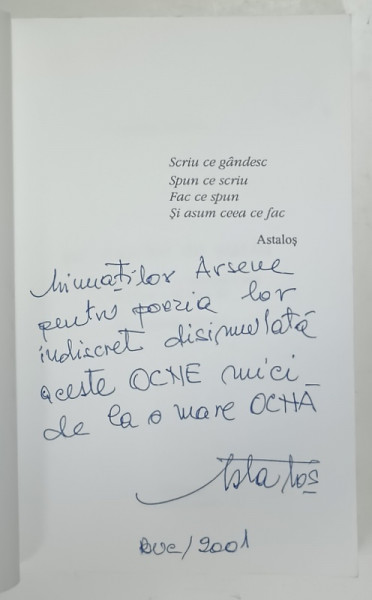 Scriu ce gândesc
Spun ce scriu
Fac ce spun
Și asum ceea ce fac
Astaloș
Minunaților Arsene
pentru poezia lor
indiscret disimulată
aceste OCNE mici
de la o mare OCNĂ
Astaloș
Buc/2001